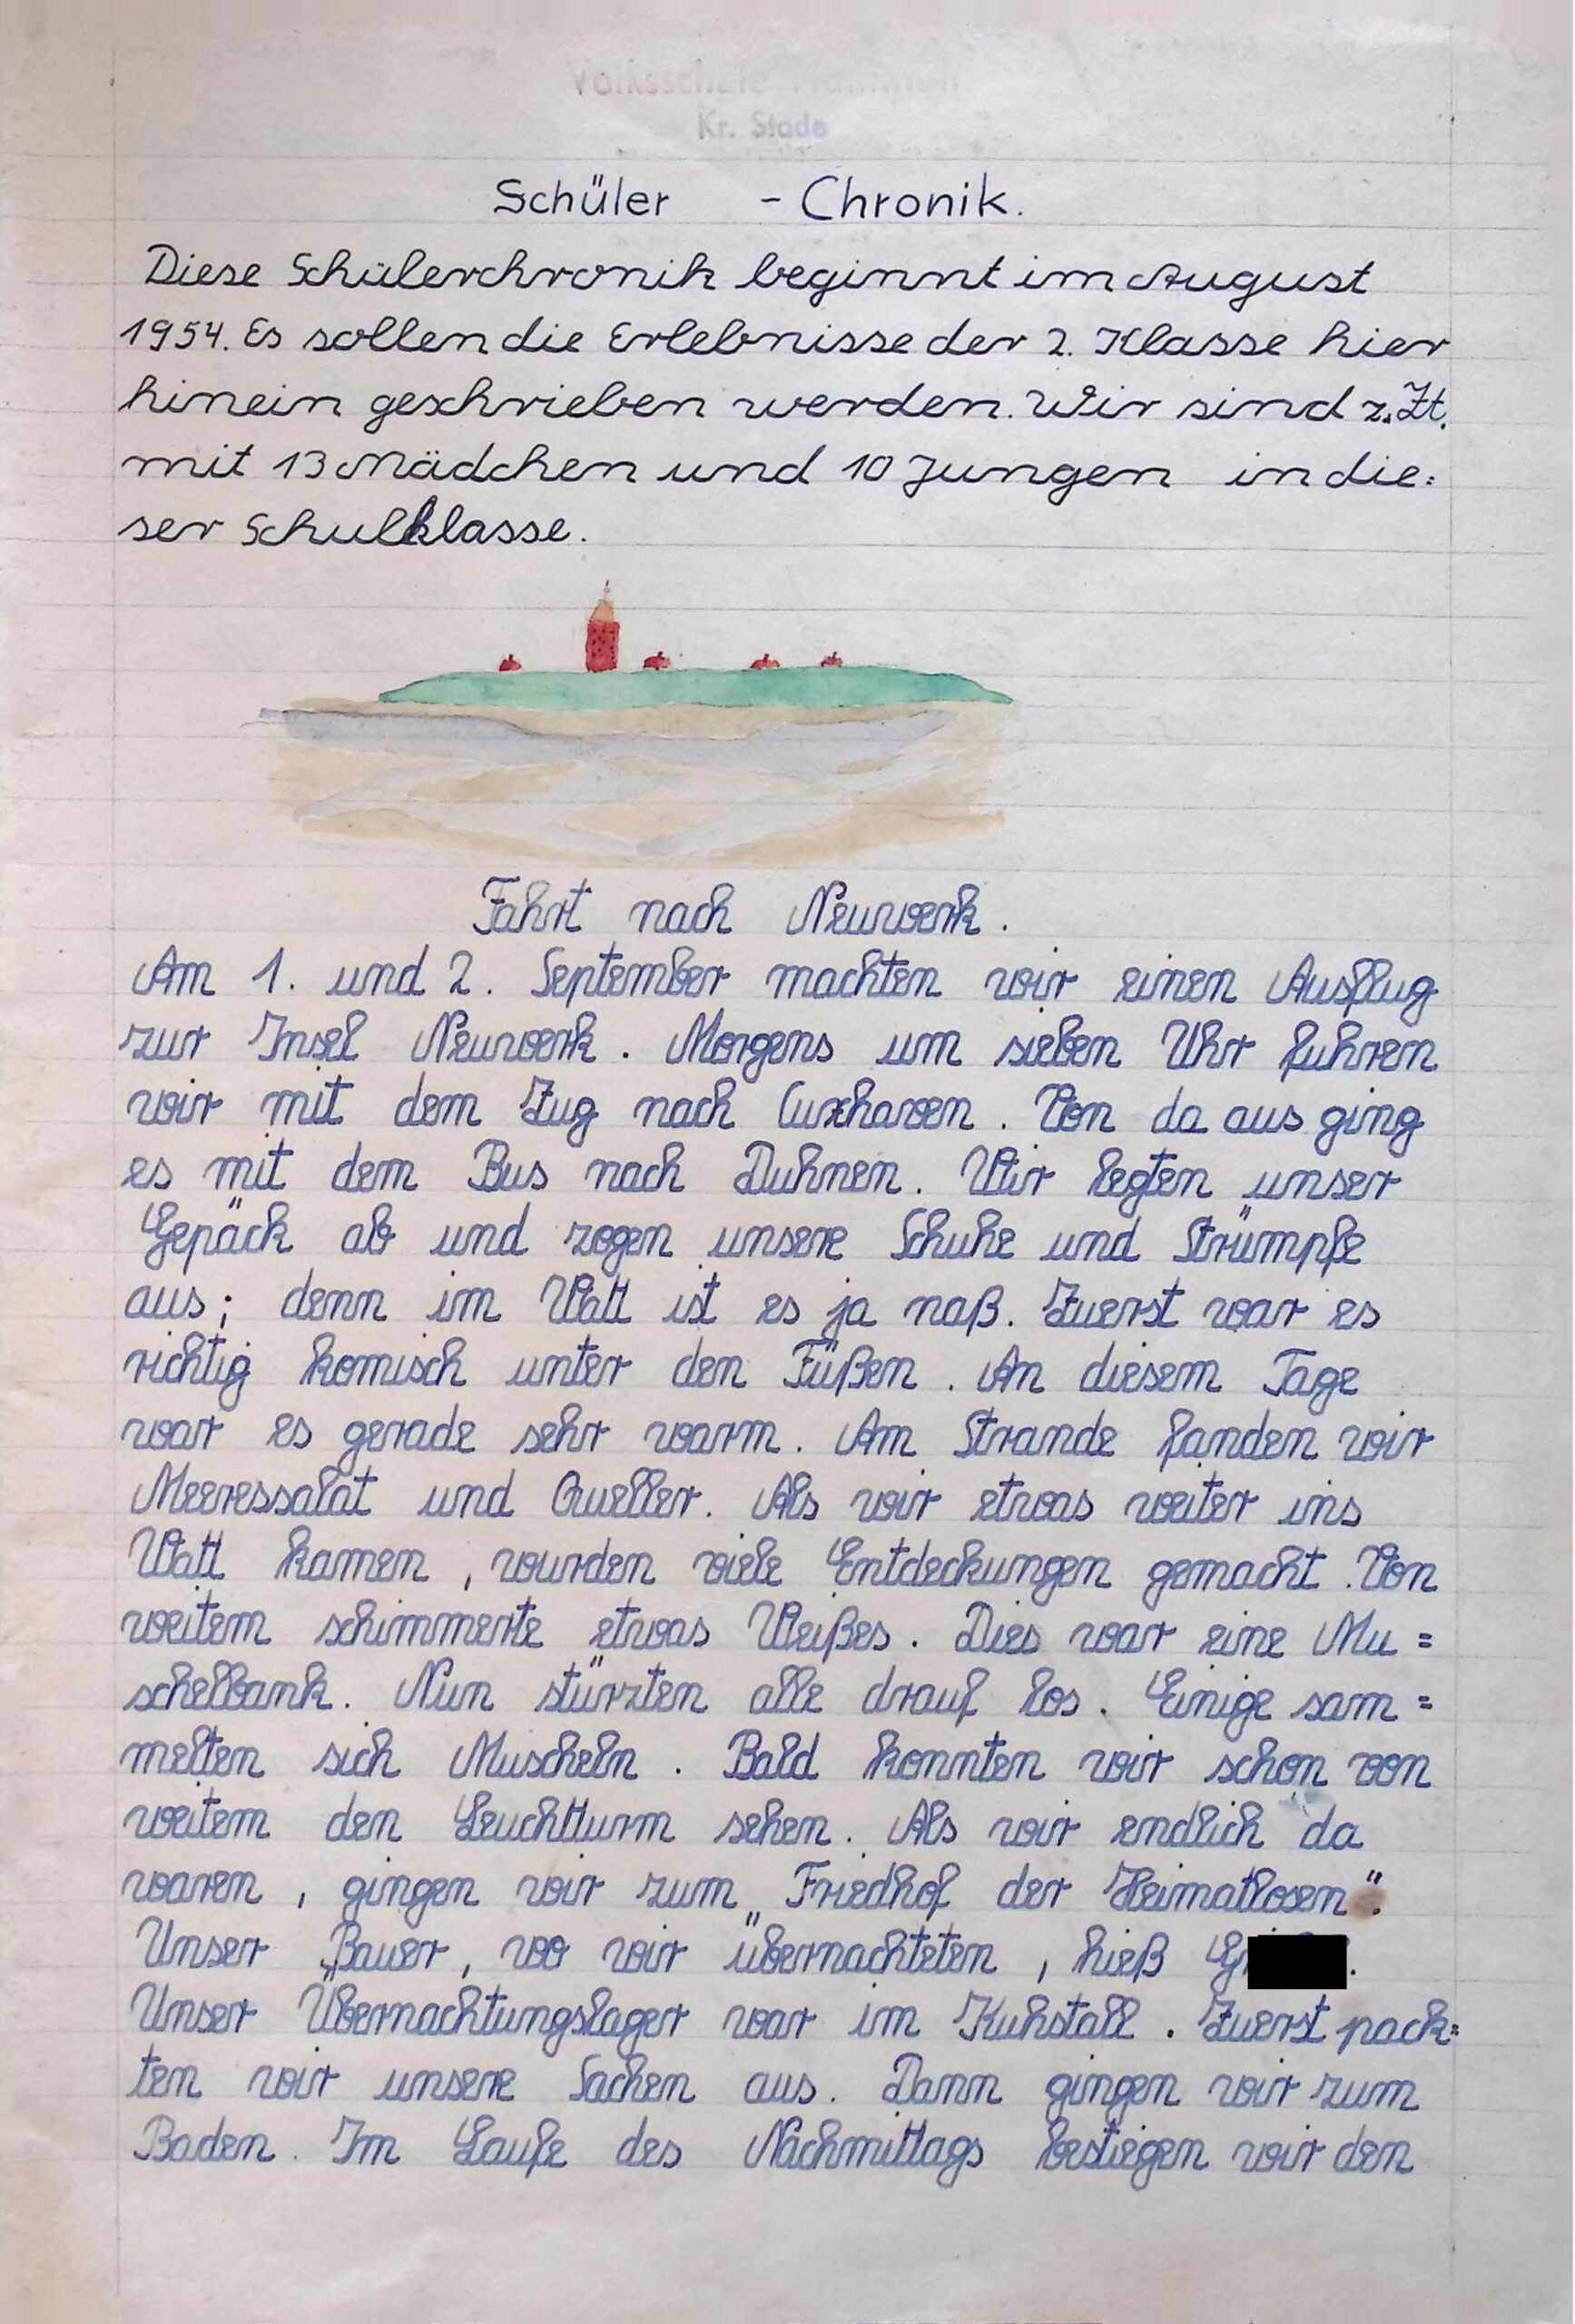 Volksschule
Kr. Stade
Schüler - Chronik.
Diese Schülerchronik beginnt im August
1954. Es sollen die Erlebnisse der 2. Klasse hier
hinein geschrieben werden. Wir sind z. Zt.
mit 13 Mädchen und 10 Jungen in die=
ser Schulklasse.
Fahrt nach Neuwerk.
Am 1. und 2. September machten wir einen Ausflug
zur Insel Neuwerk. Morgens um sieben Uhr fuhren
wir mit dem Zug nach Cuxhaven. Von da aus ging
es mit dem Bus nach Duhnen. Wir legten unser
Gepäck ab und zogen unsere Schuhe und Strümpfe
aus; denn im Watt ist es ja naß. Zuerst war es
richtig komisch unter den Füßen. An diesem Tage
war es gerade sehr warm. Am Strande fanden wir
Meeressalat und Queller. Als wir etwas weiter ins
Watt kamen, wurden viele Entdeckungen gemacht. Von
weitem schimmerte etwas Weißes. Dies war eine Mu=
schelbank. Nun stürzten alle drauf los. Einige sam=
melten sich Muscheln. Bald konnten wir schon von
weitem den Leuchtturm sehen. Als wir endlich da
waren, gingen wir zum „Friedhof der Heimatlosen".
Unser „Bauer, wo wir übernachteten, hieß
Unser Übernachtungslager war im Kuhstall. Zuerst pack=
ten wir unsere Sachen aus. Dann gingen wir zum
Baden. Im Laufe des Nachmittags bestiegen wir den